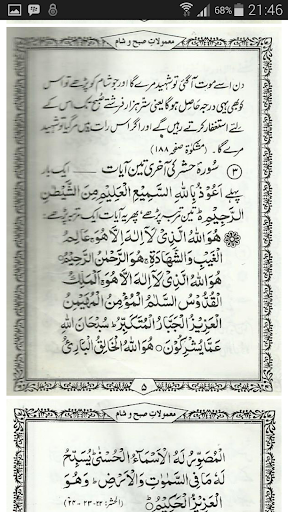 21:46
معمولاتِ صبح و شام
دن اسے موت آگئی تو شہید مرے گا اور جو شام کو پڑھے تو اس
کو بھی یہی درجہ حاصل ہوگا یعنی ستر ہزار فرشتے صبح تک اس کے
لئے استغفار کرتے رہیں گے اور اگر اس رات میں مر گیا تو شہید
مرے گا۔ (مشکوٰۃ صفحہ ۱۸۸)
(۳) سورۂ حشر کی آخری تین آیات ...... ایک بار
پہلے اَعُوْذُ بِاللّٰهِ السَّمِيْعِ الْعَلِيْمِ مِنَ الشَّيْطٰنِ
الرَّجِيْمِ ط تین مرتبہ پڑھے، پھر یہ آیات ایک مرتبہ پڑھے:
هُوَ اللّٰهُ الَّذِيْ لَآ اِلٰهَ اِلَّا هُوَ عَالِمُ
الْغَيْبِ وَالشَّهَادَةِ هُوَ الرَّحْمٰنُ الرَّحِيْمُ
هُوَ اللّٰهُ الَّذِيْ لَآ اِلٰهَ اِلَّا هُوَ اَلْمَلِكُ
الْقُدُّوْسُ السَّلٰمُ الْمُؤْمِنُ الْمُهَيْمِنُ
الْعَزِيْزُ الْجَبَّارُ الْمُتَكَبِّرُ ط سُبْحَانَ اللّٰهِ
عَمَّا يُشْرِكُوْنَ هُوَ اللّٰهُ الْخَالِقُ الْبَارِئُ
۵
معمولاتِ صبح و شام
الْمُصَوِّرُ لَهُ الْاَسْمَآءُ الْحُسْنٰى ط يُسَبِّحُ
لَهٗ مَا فِي السَّمٰوٰتِ وَالْاَرْضِ ج وَهُوَ
الْعَزِيْزُ الْحَكِيْمُ (الحشر: ۲۲-۲۳-۲۴)